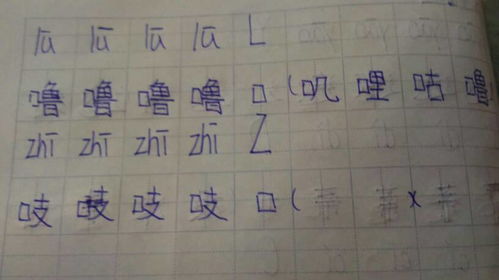 lū lū lū lū L
噜 噜 噜 噜 口 (叽 哩 咕 噜
zhī zhī zhī zhī Z
吱 吱 吱 吱 口 (